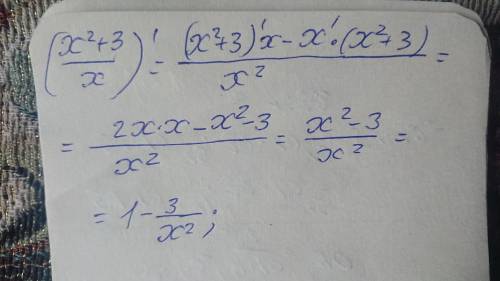 ((x²+3)/x)' = ((x²+3)'x - x'·(x²+3))/x² =
= (2x·x - x² - 3)/x² = (x² - 3)/x² =
= 1 - 3/x²;